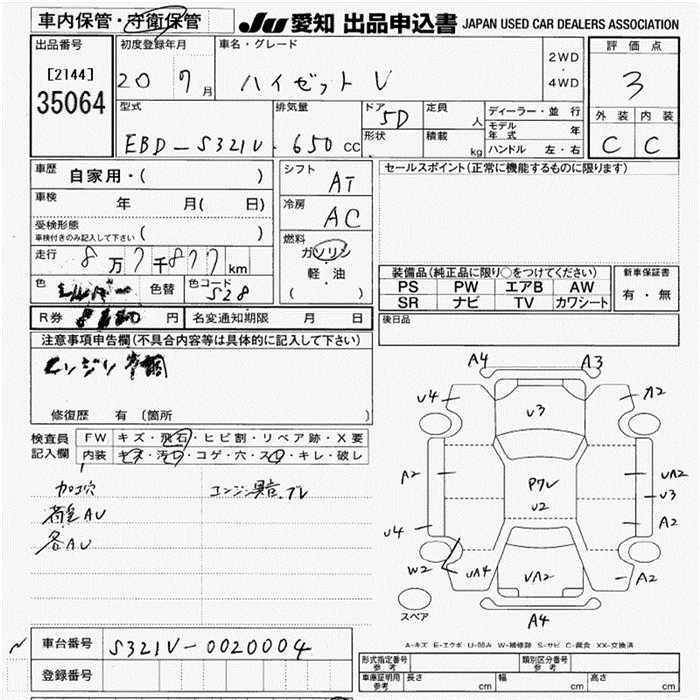 車内保管・守衛保管
JU 愛知 出品申込書 JAPAN USED CAR DEALERS ASSOCIATION
出品番号
[2144]
35064
初度登録年月
20 7月
車名・グレード
ハイゼット V
2WD
・
4WD
評価点
3
外装 内装
C C
型式
EBD-S321V
排気量
650 CC
ドア
5D
形状
定員
人
積載
kg
ディーラー・並行
モデル年式 年
ハンドル 左・右
車歴
自家用・( )
車検
年 月( 日)
受検形態
車検付きのみ記入して下さい ( )
走行
8万7千877km
色
シルバー
色替
色コード
S28
シフト
AT
冷房
AC
燃料
ガソリン
軽・油
( )
セールスポイント(正常に機能するものに限ります)
装備品(純正品に限り○をつけてください)
PS PW エアB AW
SR ナビ TV カワシート
新車保証書
有・無
R券 円
名変通知期限 月 日
後日品
注意事項申告欄(不具合内容等は具体的に記入して下さい)
エンジン
修復歴 有 [箇所 ]
検査員
記入欄
FW キズ・飛石・ヒビ割・リペア跡・X要
内装 キズ・汚レ・コゲ・穴・スレ・キレ・破レ
加工穴
エンジン異音.ブレ
荷室AU
各AU
A4 A3
U4 A2
U3
A2 P7レ UA2
U2 U3
U4 A2
W2 UA4 UA2 A2
スペア
A4
A-キズ E-エクボ U-凹み W-補修跡 S-サビ C-腐食 XX-交換済
車台番号
S321V-0020004
登録番号
形式指定番号
参考
類別区分番号
参考
車庫証明用
参考
長さ cm 幅 cm 高さ cm